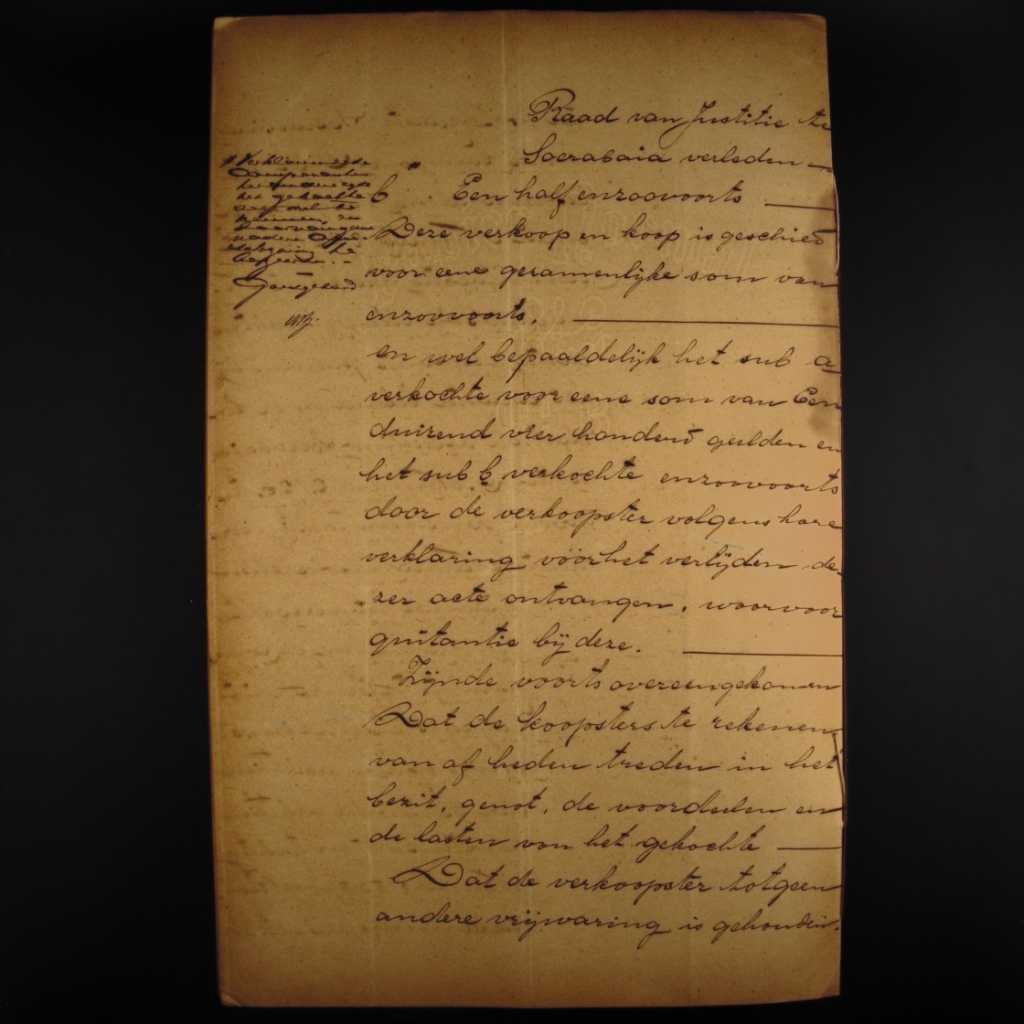 Raad van Justitie te
Soerabaia verleden
b. Een half enzoovoorts
Deze verkoop en koop is geschied
voor eene gezamenlijke som van
enzoovoorts.
en wel bepaaldelijk het sub a
verkochte voor eene som van Een
duizend vier honderd gulden en
het sub b verkochte enzoovoorts
door de verkoopster volgens hare
verklaring vóór het verlijden de-
zer acte ontvangen, waarvoor
quitantie bij deze.
Zijnde voorts overeengekomen
Dat de koopsters te rekenen
van af heden treden in het
bezit, genot, de voordeelen en
de lasten van het gekochte
Dat de verkoopster tot geen
andere vrijwaring is gehouden.